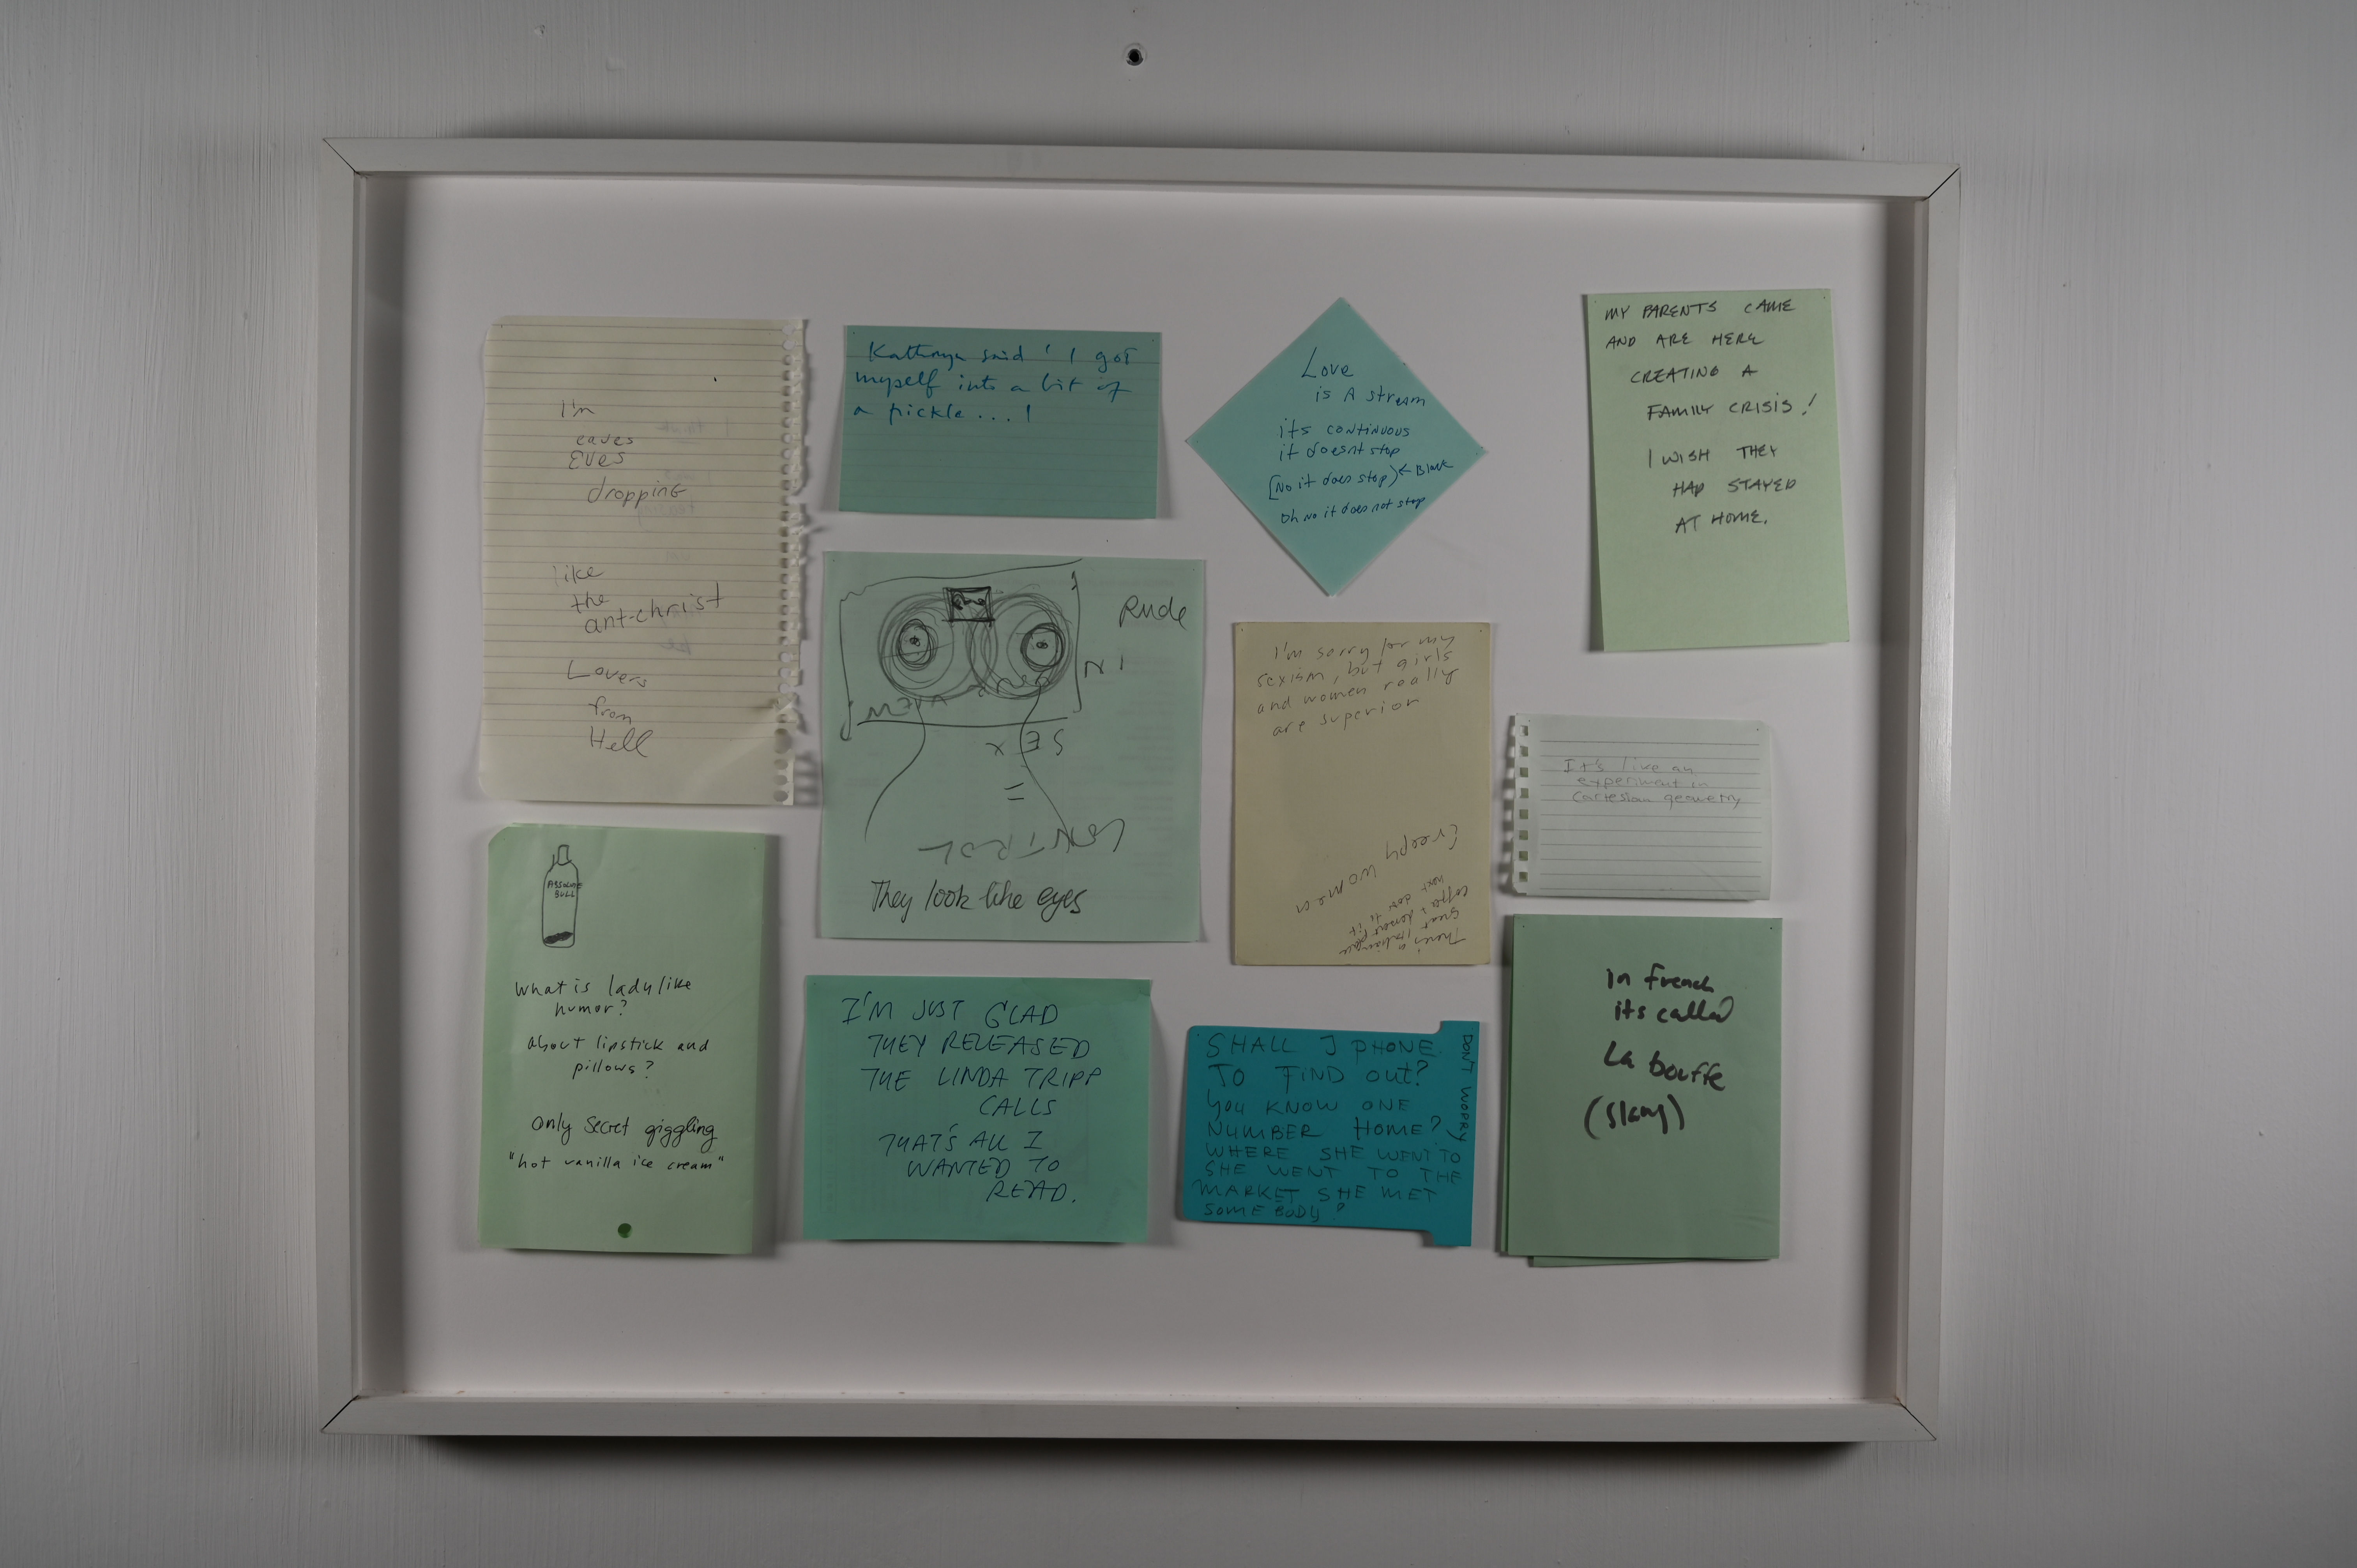 I'm
eaves
Eves
dropping
like
the
ant-christ
Lovers
from
Hell
Kathryn said 'I got
myself into a bit of
a pickle...!
Love
is A stream
its continuous
it doesnt stop
[No it does stop) ← Black
Oh No it does not stop
MY PARENTS CAME
AND ARE HERE
CREATING A
FAMILY CRISIS!
I WISH THEY
HAD STAYED
AT HOME.
Rude
SEX
=
CONTROL
They look like eyes
I'm sorry for my
sexism, but girls
and women really
are superior
Creepy women
There's a
great Italian
coffee & dessert place
next door to it
It's like an
experiment in
Cartesian geometry
ABSOLUTE
BULL
What is ladylike
humor?
about lipstick and
pillows?
only secret giggling
"hot vanilla ice cream"
I'M JUST GLAD
THEY RELEASED
THE LINDA TRIPP
CALLS
THAT'S ALL I
WANTED TO
READ.
SHALL I PHONE
TO FIND OUT?
YOU KNOW ONE
NUMBER HOME?
WHERE SHE WENT TO
SHE WENT TO THE
MARKET SHE MET
SOME BODY?
DONT WORRY
in french
its called
La bouffe
(slang)